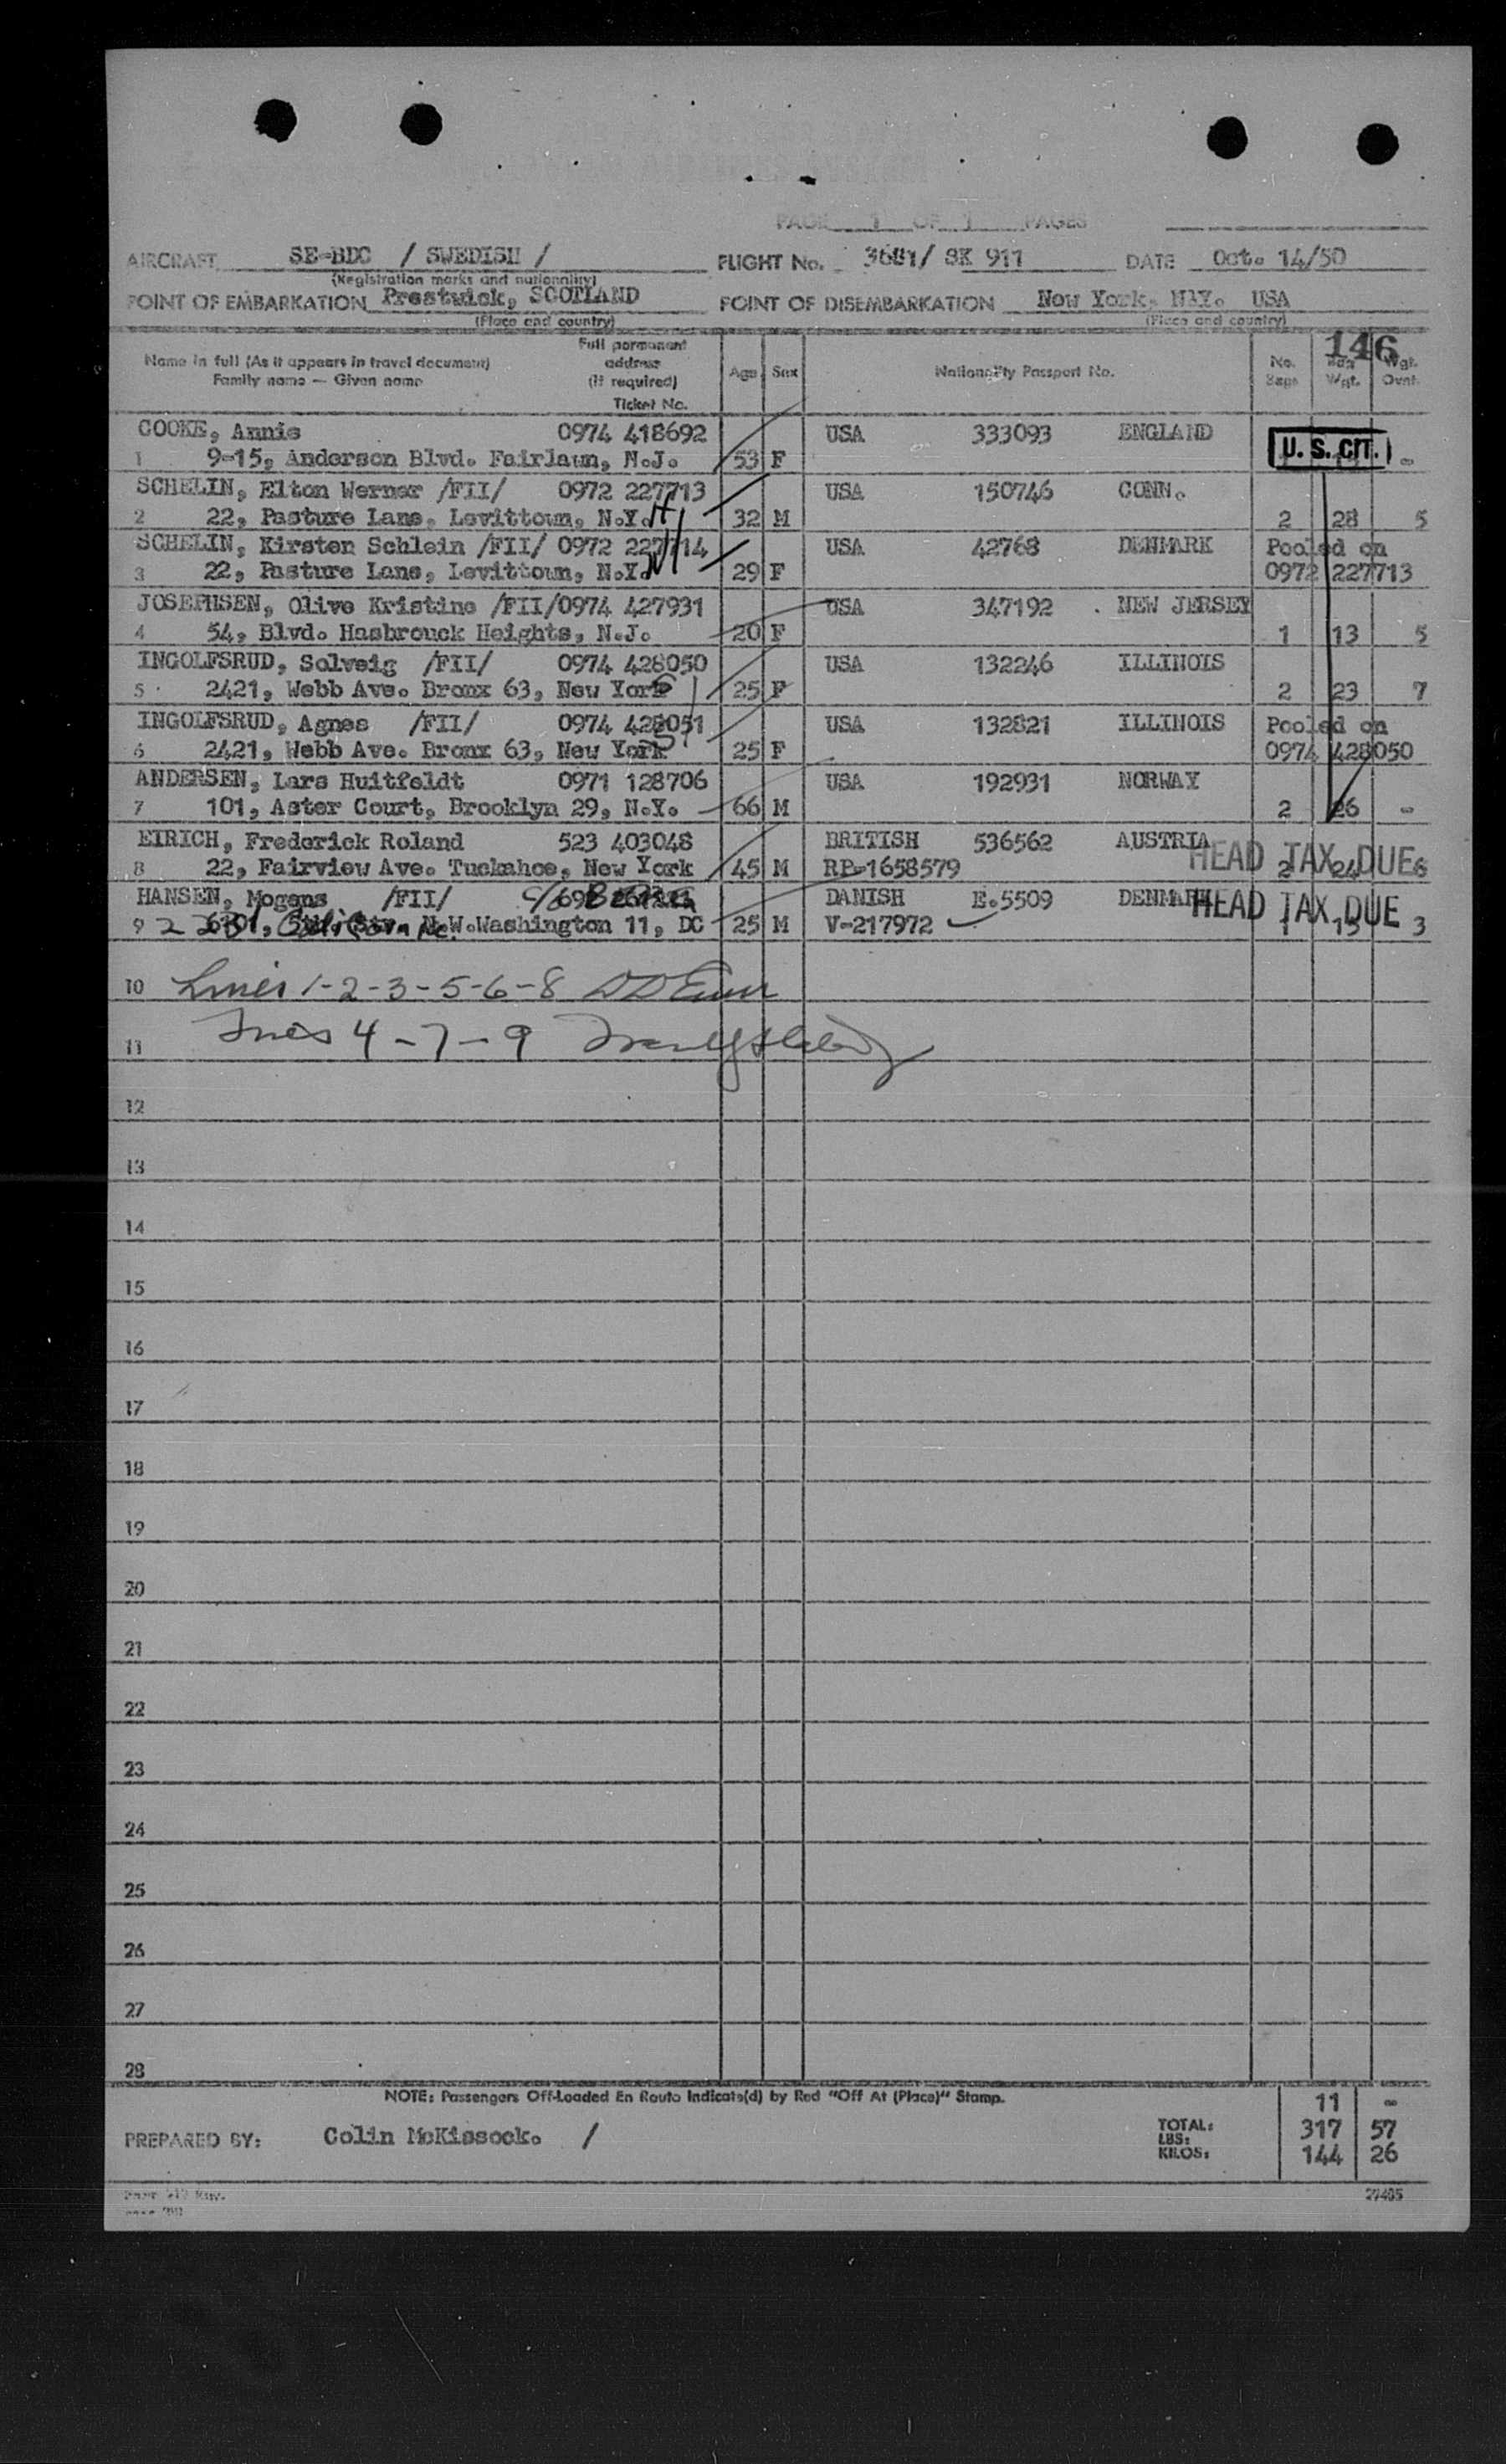 PAGE 1 OF 1 PAGES
AIRCRAFT SE-BDC / SWEDISH / FLIGHT No. 3681/ SK 911 DATE Oct. 14/50
(Registration marks and nationality)
POINT OF EMBARKATION Prestwick, SCOTLAND POINT OF DISEMBARKATION New York, N.Y. USA
(Place and country) (Place and country)
146
Name in full (As it appears in travel document)
Family name — Given name
Full permanent
address
(if required)
Ticket No.
Age Sex Nationality Passport No. No. Bags Wgt. Wgt. Ovnt.
COOKE, Annie 0974 418692 USA 333093 ENGLAND
1 9-15, Anderson Blvd. Fairlawn, N.J. 53 F U. S. CIT. -
SCHELIN, Elton Werner /FII/ 0972 227713 USA 150746 CONN.
2 22, Pasture Lane, Levittown, N.Y. 32 M 2 28 5
SCHELIN, Kirsten Schlein /FII/ 0972 227714 USA 42768 DENMARK Pooled on
3 22, Pasture Lane, Levittown, N.Y. 29 F 0972 227713
JOSEPHSEN, Olive Kristine /FII/0974 427931 USA 347192 . NEW JERSEY
4 54, Blvd. Hasbrouck Heights, N.J. 20 F 1 13 5
INGOLFSRUD, Solveig /FII/ 0974 428050 USA 132246 ILLINOIS
5 2421, Webb Ave. Bronx 63, New York 25 F 2 23 7
INGOLFSRUD, Agnes /FII/ 0974 428051 USA 132821 ILLINOIS Pooled on
6 2421, Webb Ave. Bronx 63, New York 25 F 0974 428050
ANDERSEN, Lars Huitfeldt 0971 128706 USA 192931 NORWAY
7 101, Aster Court, Brooklyn 29, N.Y. 66 M 2 26 -
EIRICH, Frederick Roland 523 403048 BRITISH 536562 AUSTRIA HEAD TAX DUE
8 22, Fairview Ave. Tuckahoe, New York 45 M RP-1658579 2 24 6
HANSEN, Mogens /FII/ DANISH E.5509 DENMARK HEAD TAX DUE
9 N.W.Washington 11, DC 25 M V-217972 1 15 3
10 Lines 1-2-3-5-6-8
11 Lines 4-7-9
12
13
14
15
16
17
18
19
20
21
22
23
24
25
26
27
28
NOTE: Passengers Off-Loaded En Route Indicate(d) by Red "Off At (Place)" Stamp.
11 -
PREPARED BY: Colin McKissock. / TOTAL:
LBS: 317 57
KILOS: 144 26
27485